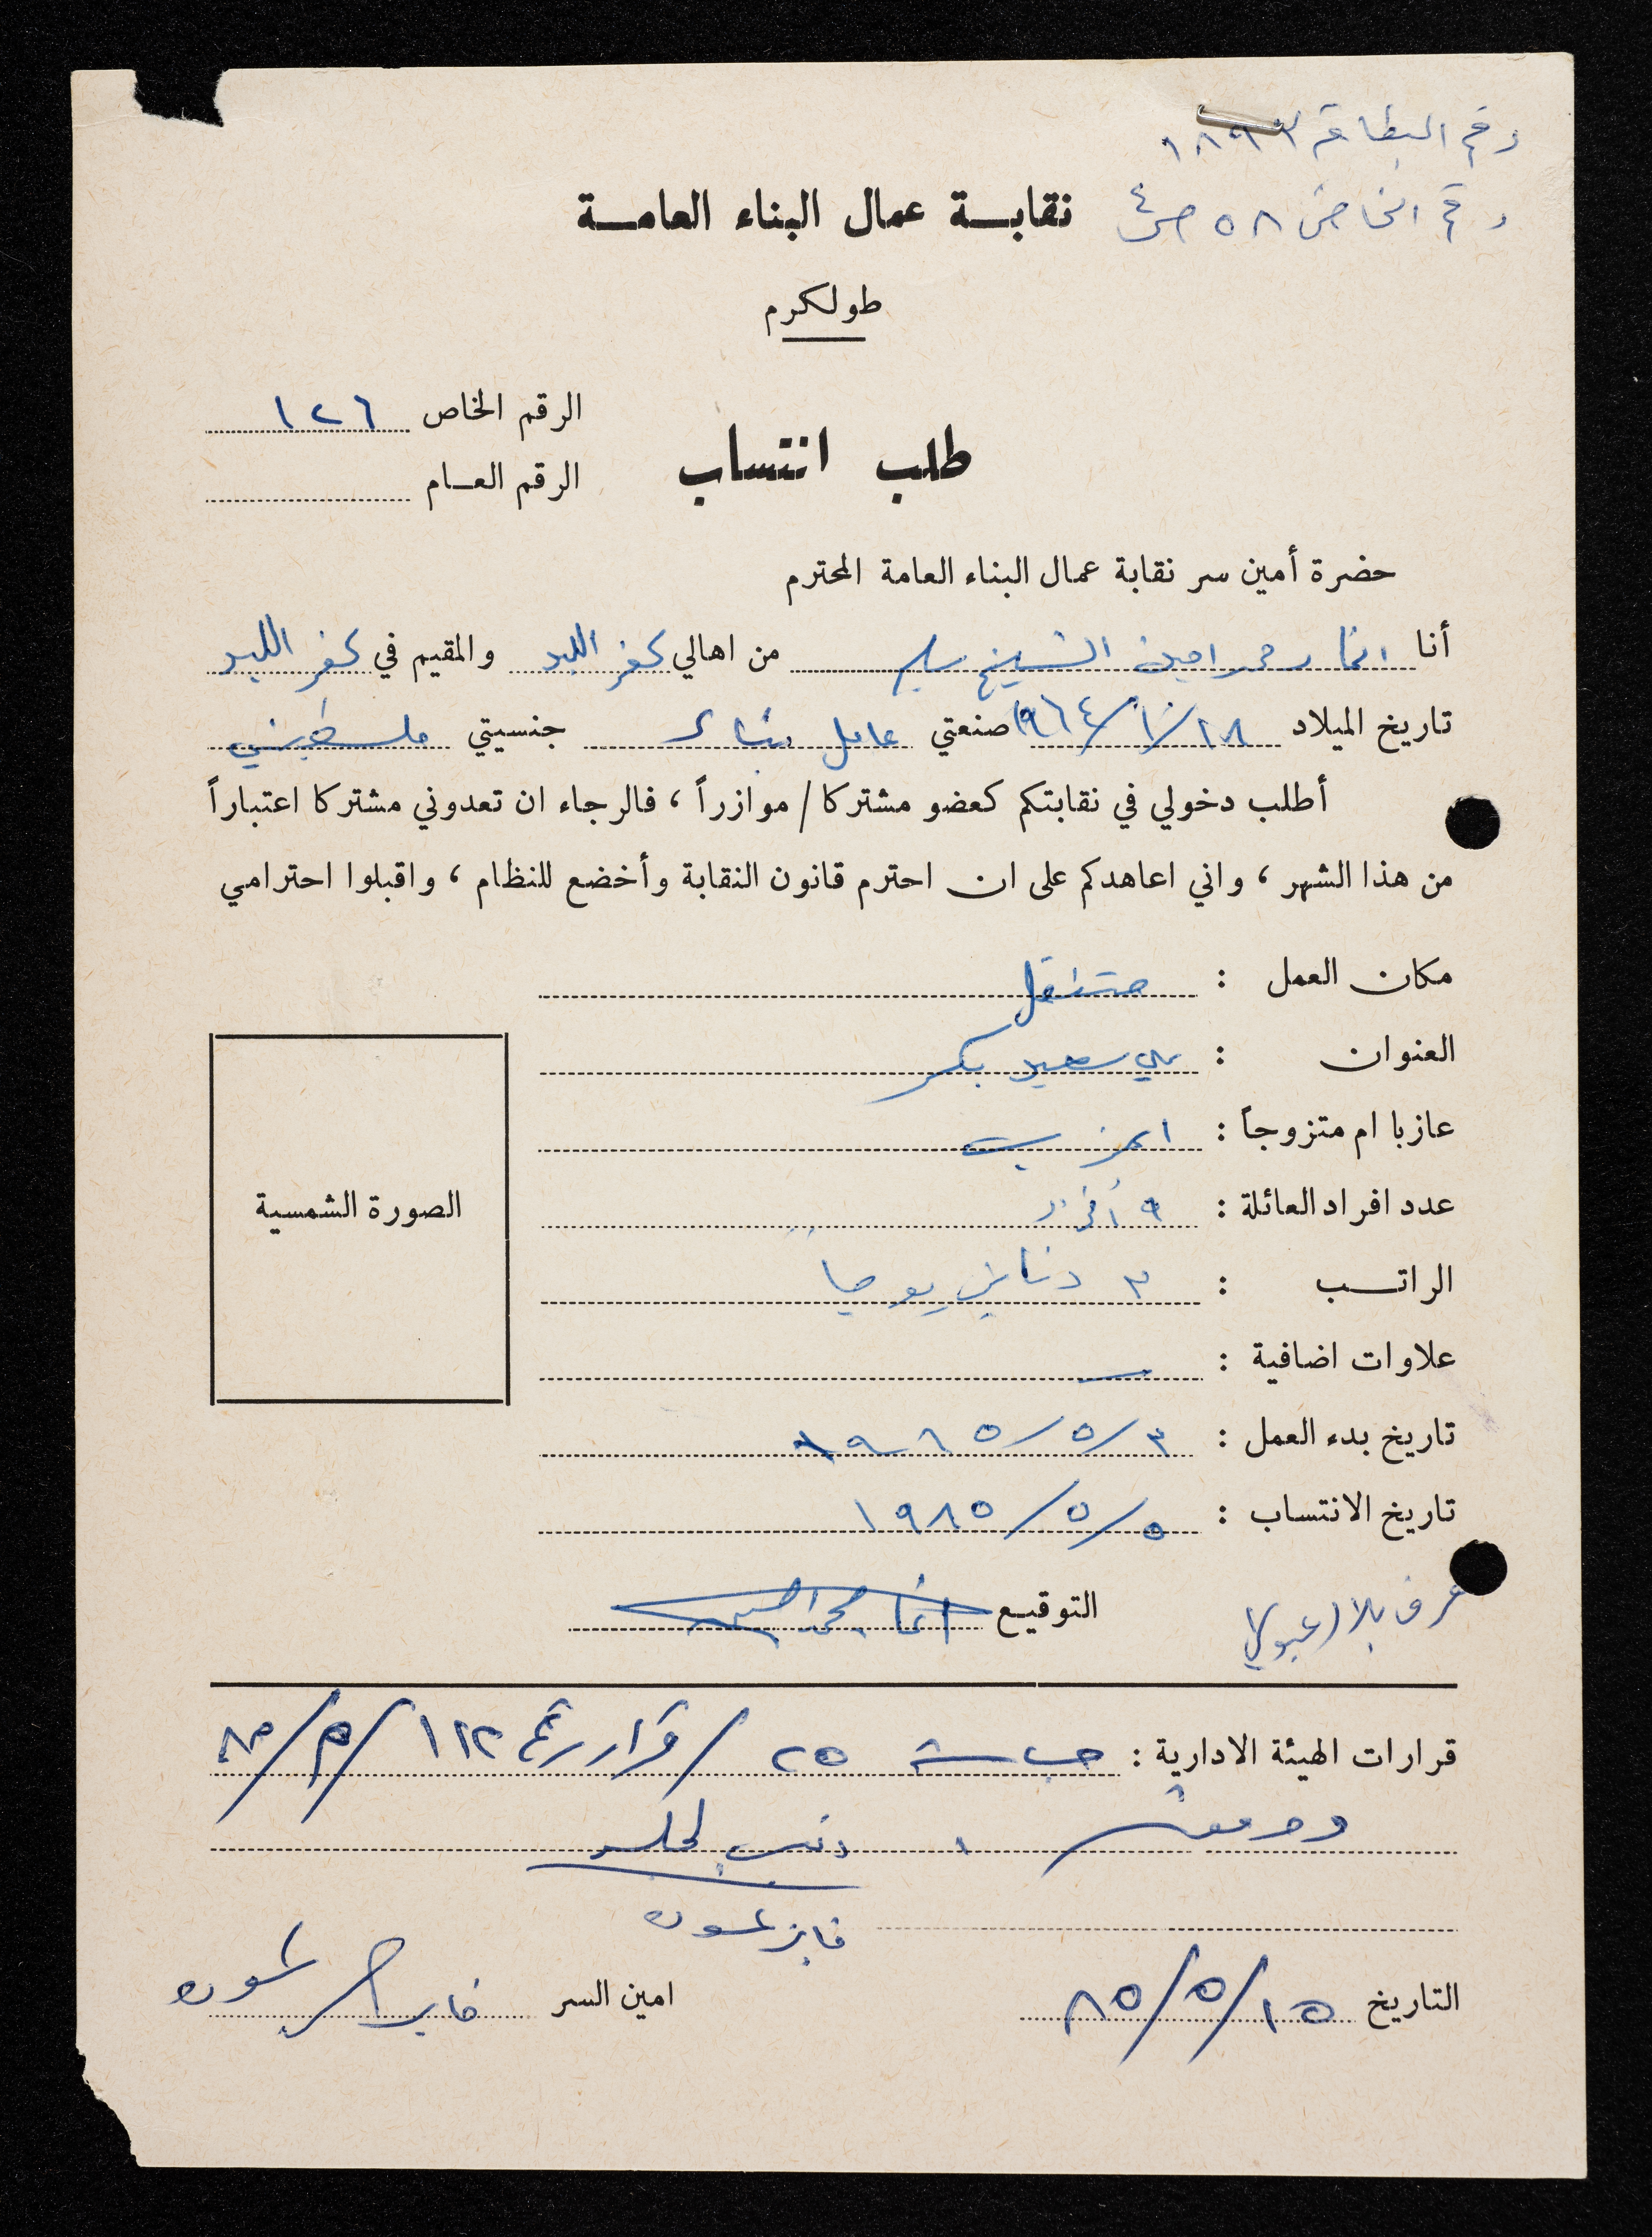 رقم البطاقة ١٨٩٣
رقم الخاص ٥٨ ص٤
نقابة عمال البناء العامة
طولكرم
الرقم الخاص ١٢٦
طلب انتساب
الرقم العام
حضرة أمين سر نقابة عمال البناء العامة المحترم
أنا محمد امين الشيخ من اهالي كفر اللبد والمقيم في كفر اللبد
تاريخ الميلاد ١٩٦٤/١٠/١٨ صنعتي عامل بناء جنسيتي فلسطيني
أطلب دخولي في نقابتكم كعضو مشتركا / موازراً ، فالرجاء ان تعدوني مشتركا اعتباراً
من هذا الشهر ، واني اعاهدكم على ان احترم قانون النقابة وأخضع للنظام ، واقبلوا احترامي
مكان العمل : متنقل
العنوان : سعيد بكر
عازبا ام متزوجاً : اعزب
عدد افراد العائلة : ٩ أفراد
الراتب : ٣ دنانير يوميا
علاوات اضافية : —
الصورة الشمسية
تاريخ بدء العمل : ١٩٨٥/٥/٣
تاريخ الانتساب : ١٩٨٥/٥/٥
التوقيع
قرارات الهيئة الادارية : جلسة ٢٥ / قرار رقم ١١٢ /٥/٨٥
فايز
التاريخ ٨٥/٥/١٥ امين السر فايز